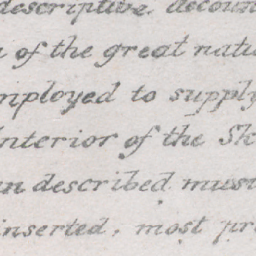 descriptive account
of the great natu
mployed to supply
Interior of the Sk
described
inserted, most pr